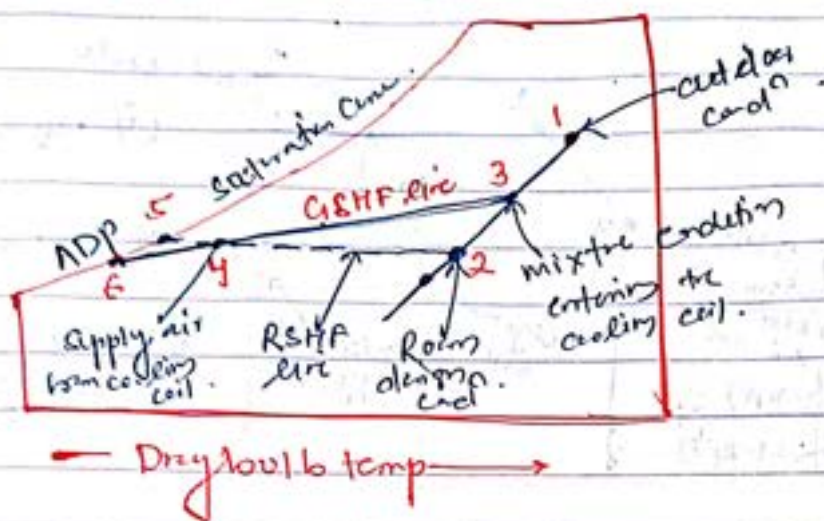 outdoor
condⁿ
1
Saturation Curve.
GSHF line
3
ADP
5
6
4
2
mixtre condetion
entering the
cooling coil.
Supply air
from cooling
coil.
RSHF
line
Room
design
cond
Dry bulb temp